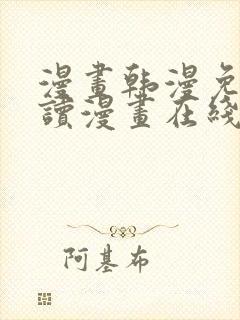 漫畫韩漫免
讀漫畫在綫
阿基布